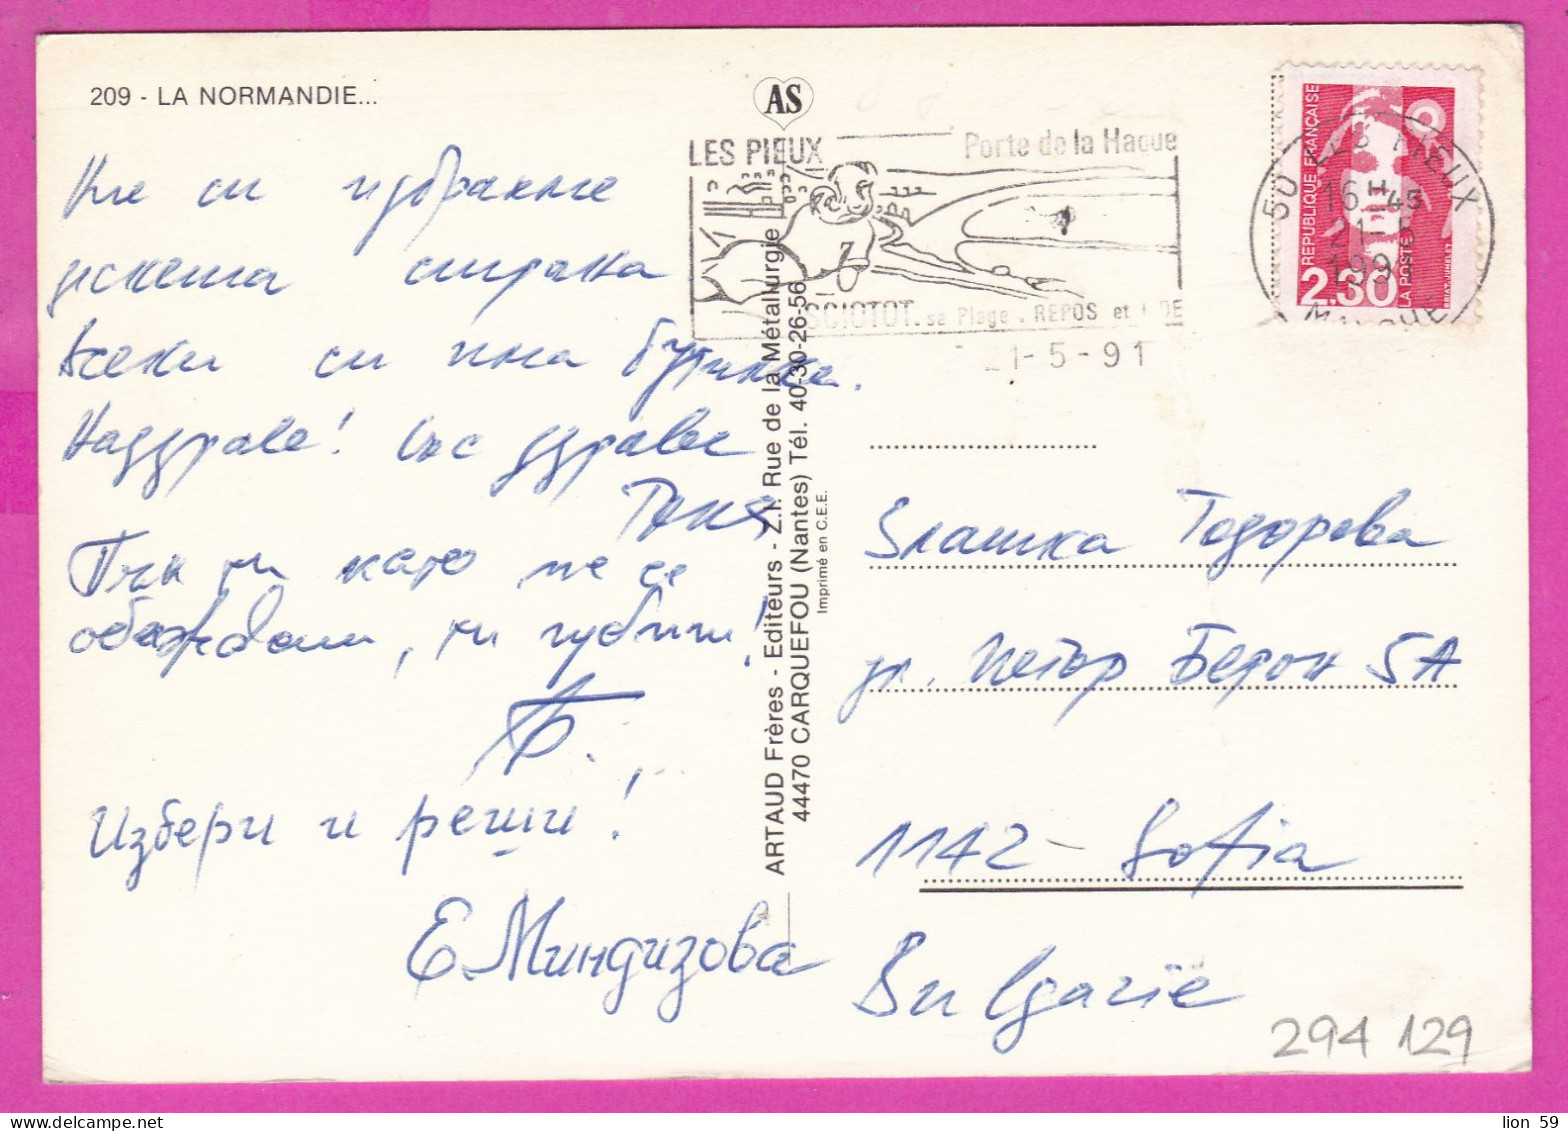 209 - LA NORMANDIE...
AS
LES PIEUX
Porte de la Hague
SCIOTOT. sa Plage . REPOS et
21-5-91
50 LES PIEUX
16H-45
21-5
1991
MANCHE
REPUBLIQUE FRANÇAISE
2.30
LA POSTE
Ние си избрахме
всеки си има бутилка.
Наздраве! Със здраве
Таня
Пък ти като не се
обаждаш, ти губиш!
Избери и реши!
Е. Миндизова
ARTAUD Frères - Editeurs - Z.I. Rue de la Métallurgie
44470 CARQUEFOU (Nantes) Tél. 40-30-26-56
Imprimé en C.E.E.
Златка Тодорова
ул. Петър Берон 5А
1142 - Sofia
Bulgarie
294 129
lion 59